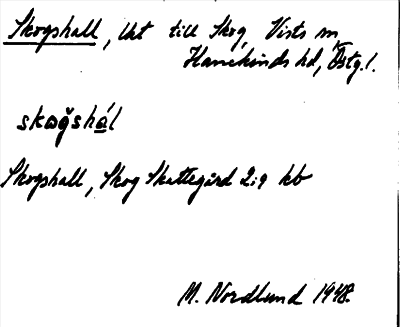 Skogshall, lht till Skog, Vists sn,
Hanekinds hd, Östg. l.
skoǧshál
Skogshall, Skog Skattegård 2:9 kb
M. Nordlund 1948.